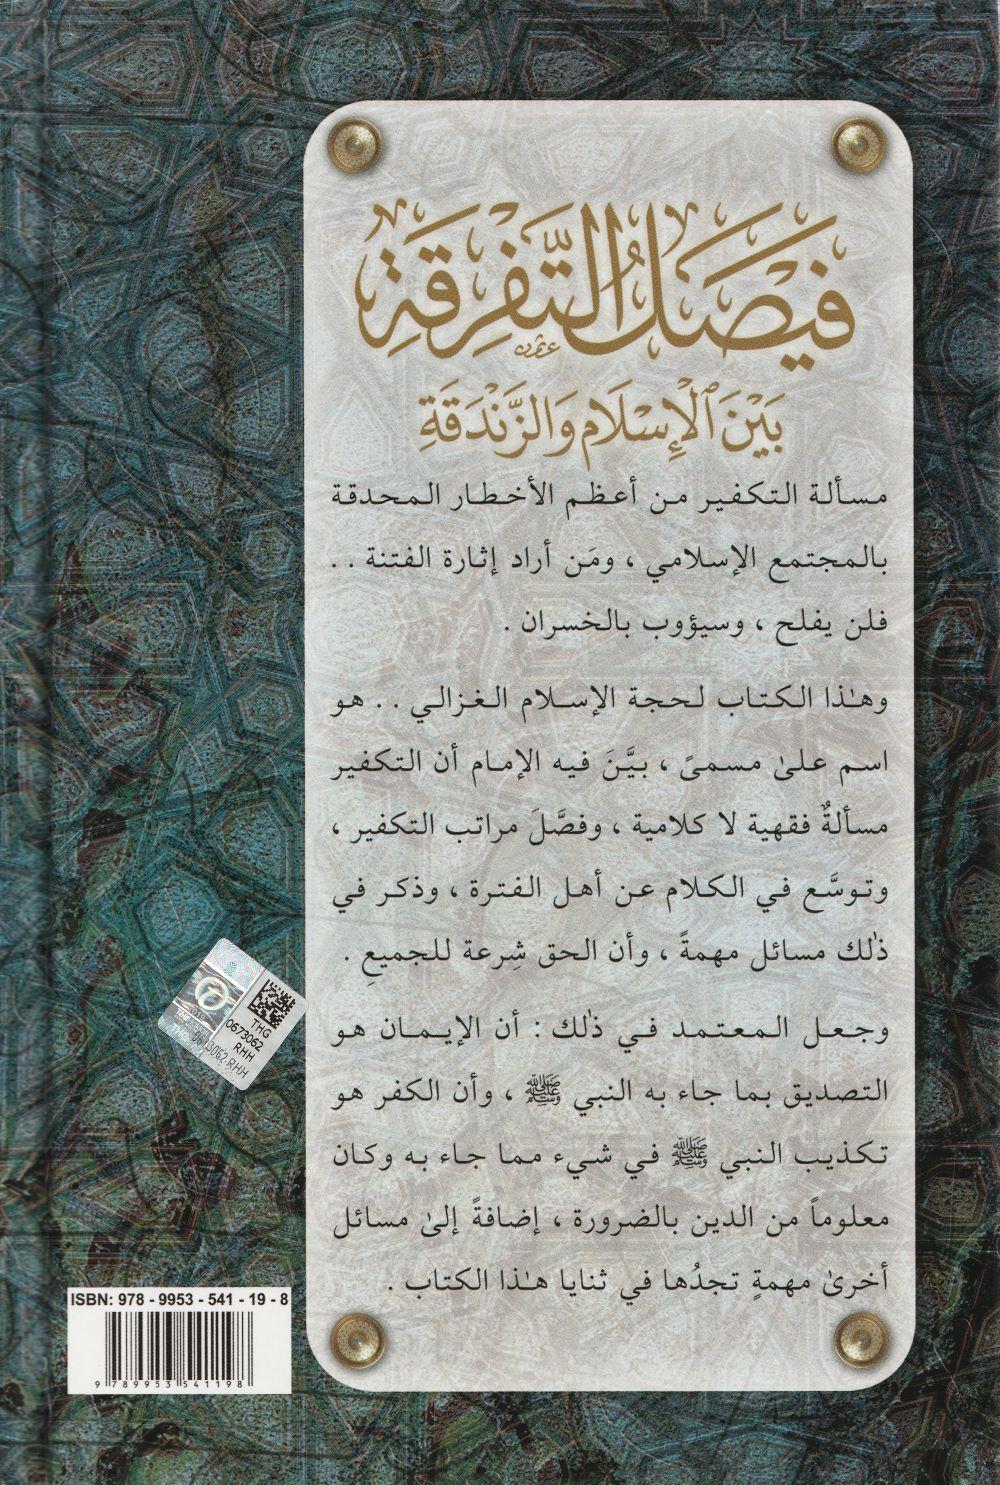 فَيْصَلُ التَّفْرِقَةِ
بَيْنَ ٱلْإِسْلَامِ وَالزَّنْدَقَةِ
مسألة التكفير من أعظم الأخطار المحدقة
بالمجتمع الإسلامي ، ومَن أراد إثارة الفتنة . .
فلن يفلح ، وسيؤوب بالخسران .
وهـٰذا الكتاب لحجة الإسلام الغزالي . . هو
اسم علىٰ مسمىً ، بيَّنَ فيه الإمام أن التكفير
مسألةٌ فقهية لا كلامية ، وفصَّلَ مراتب التكفير ،
وتوسَّع في الكلام عن أهل الفترة ، وذكر في
ذٰلك مسائل مهمةً ، وأن الحق شِرعة للجميعِ .
وجعل المعتمد في ذٰلك : أن الإيمان هو
التصديق بما جاء به النبي ﷺ ، وأن الكفر هو
تكذيب النبي ﷺ في شيء مما جاء به وكان
معلوماً من الدين بالضرورة ، إضافةً إلىٰ مسائل
أخرىٰ مهمةٍ تجدُها في ثنايا هـٰذا الكتاب .
THG
0673062
RHH
0673062-RHH
ISBN: 978 - 9953 - 541 - 19 - 8
9 789953 541198